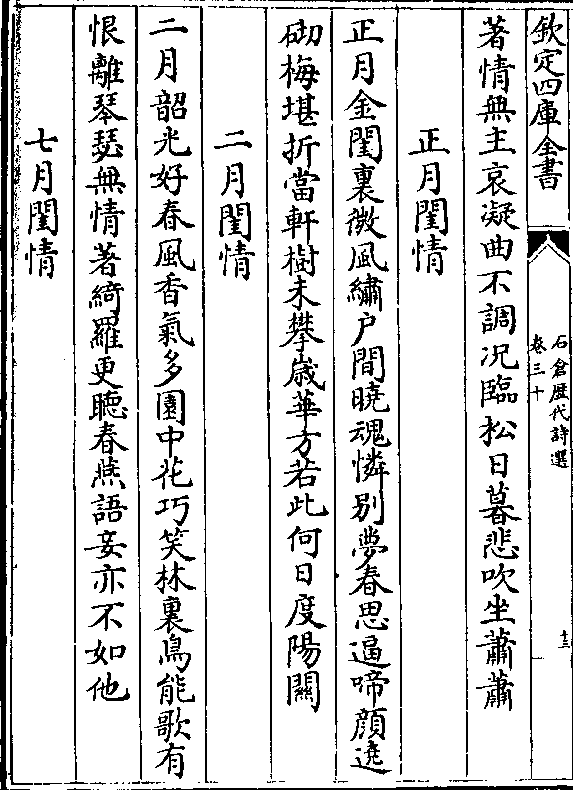 欽定四庫全書
石倉歷代詩選
卷三十
十三
著情無主哀凝曲不調况臨松日暮悲吹坐蕭蕭
正月閨情
正月金閨裏微風繡户間曉魂憐别夢春思逼啼顔遶
砌梅堪折當軒樹未攀歳華方若此何日度陽關
二月閨情
二月韶光好春風香氣多園中花巧笑林裏鳥能歌有
恨離琴瑟無情著綺羅更聽春燕語妾亦不如他
七月閨情